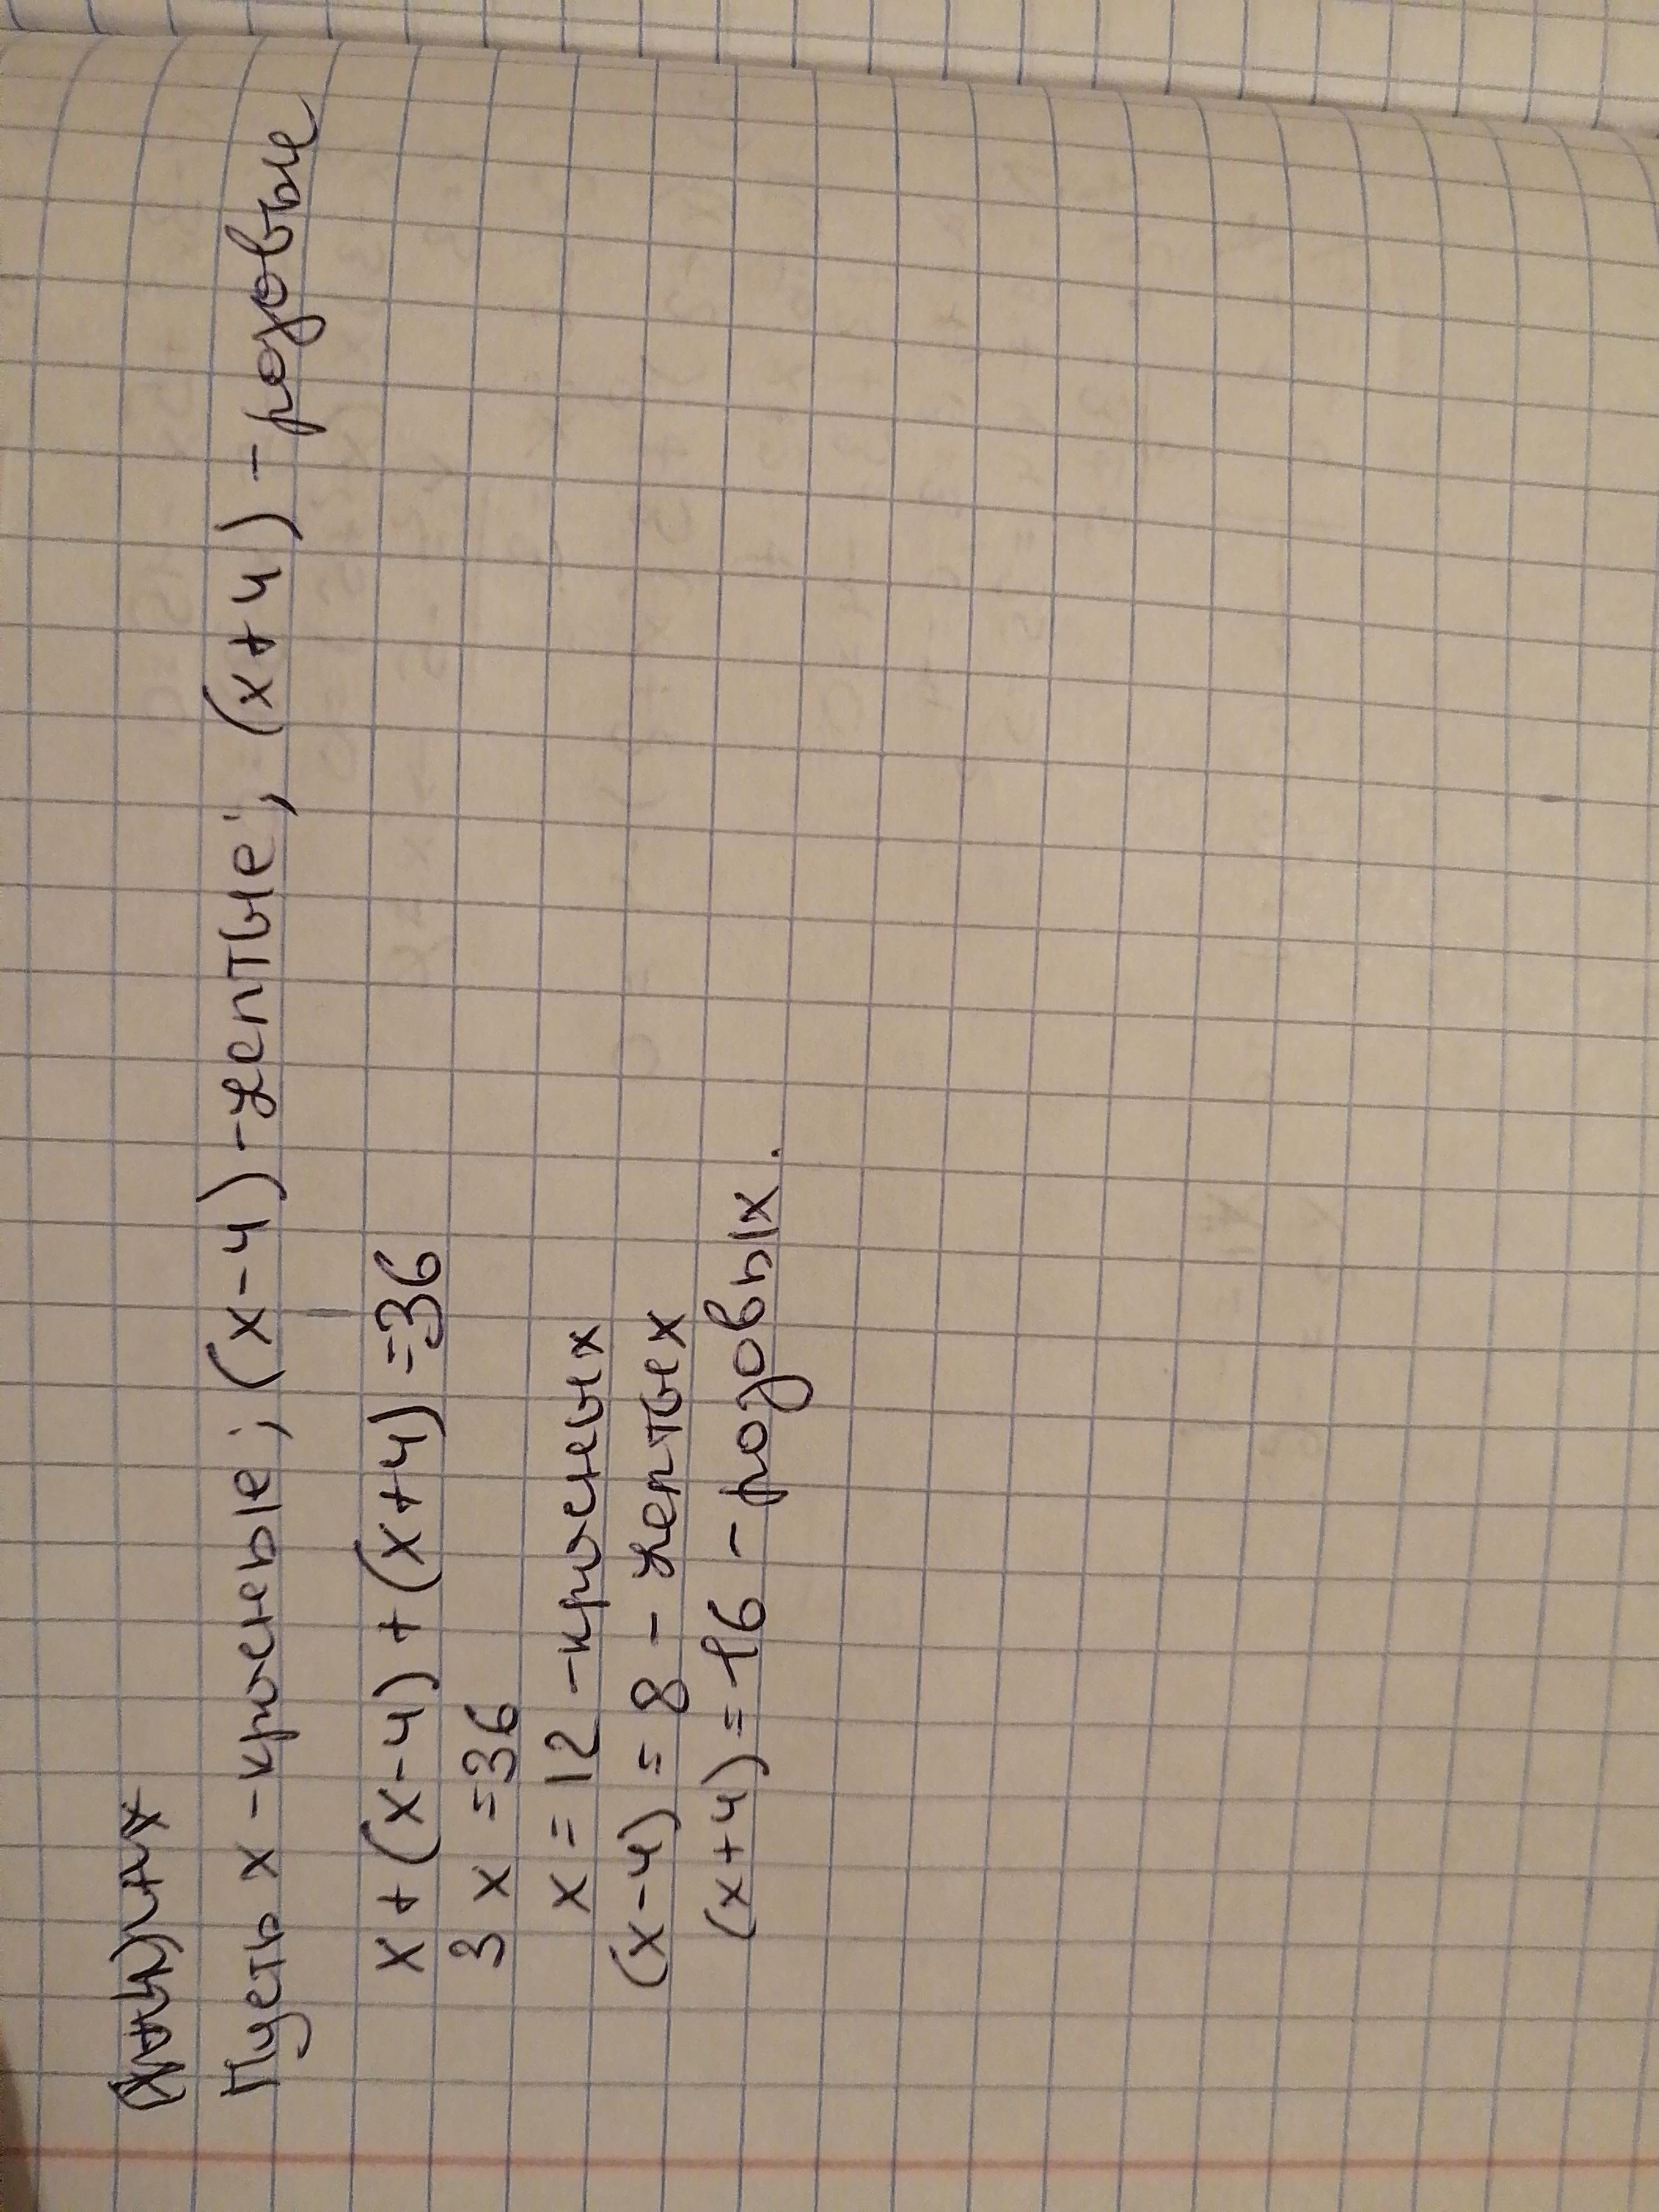 Пусть х - красные; (х-4) - желтые; (х+4) - розовые
х+(х-4)+(х+4)=36
3х=36
х=12 - красных
(х-4)=8 - желтых
(х+4)=16 - розовых.